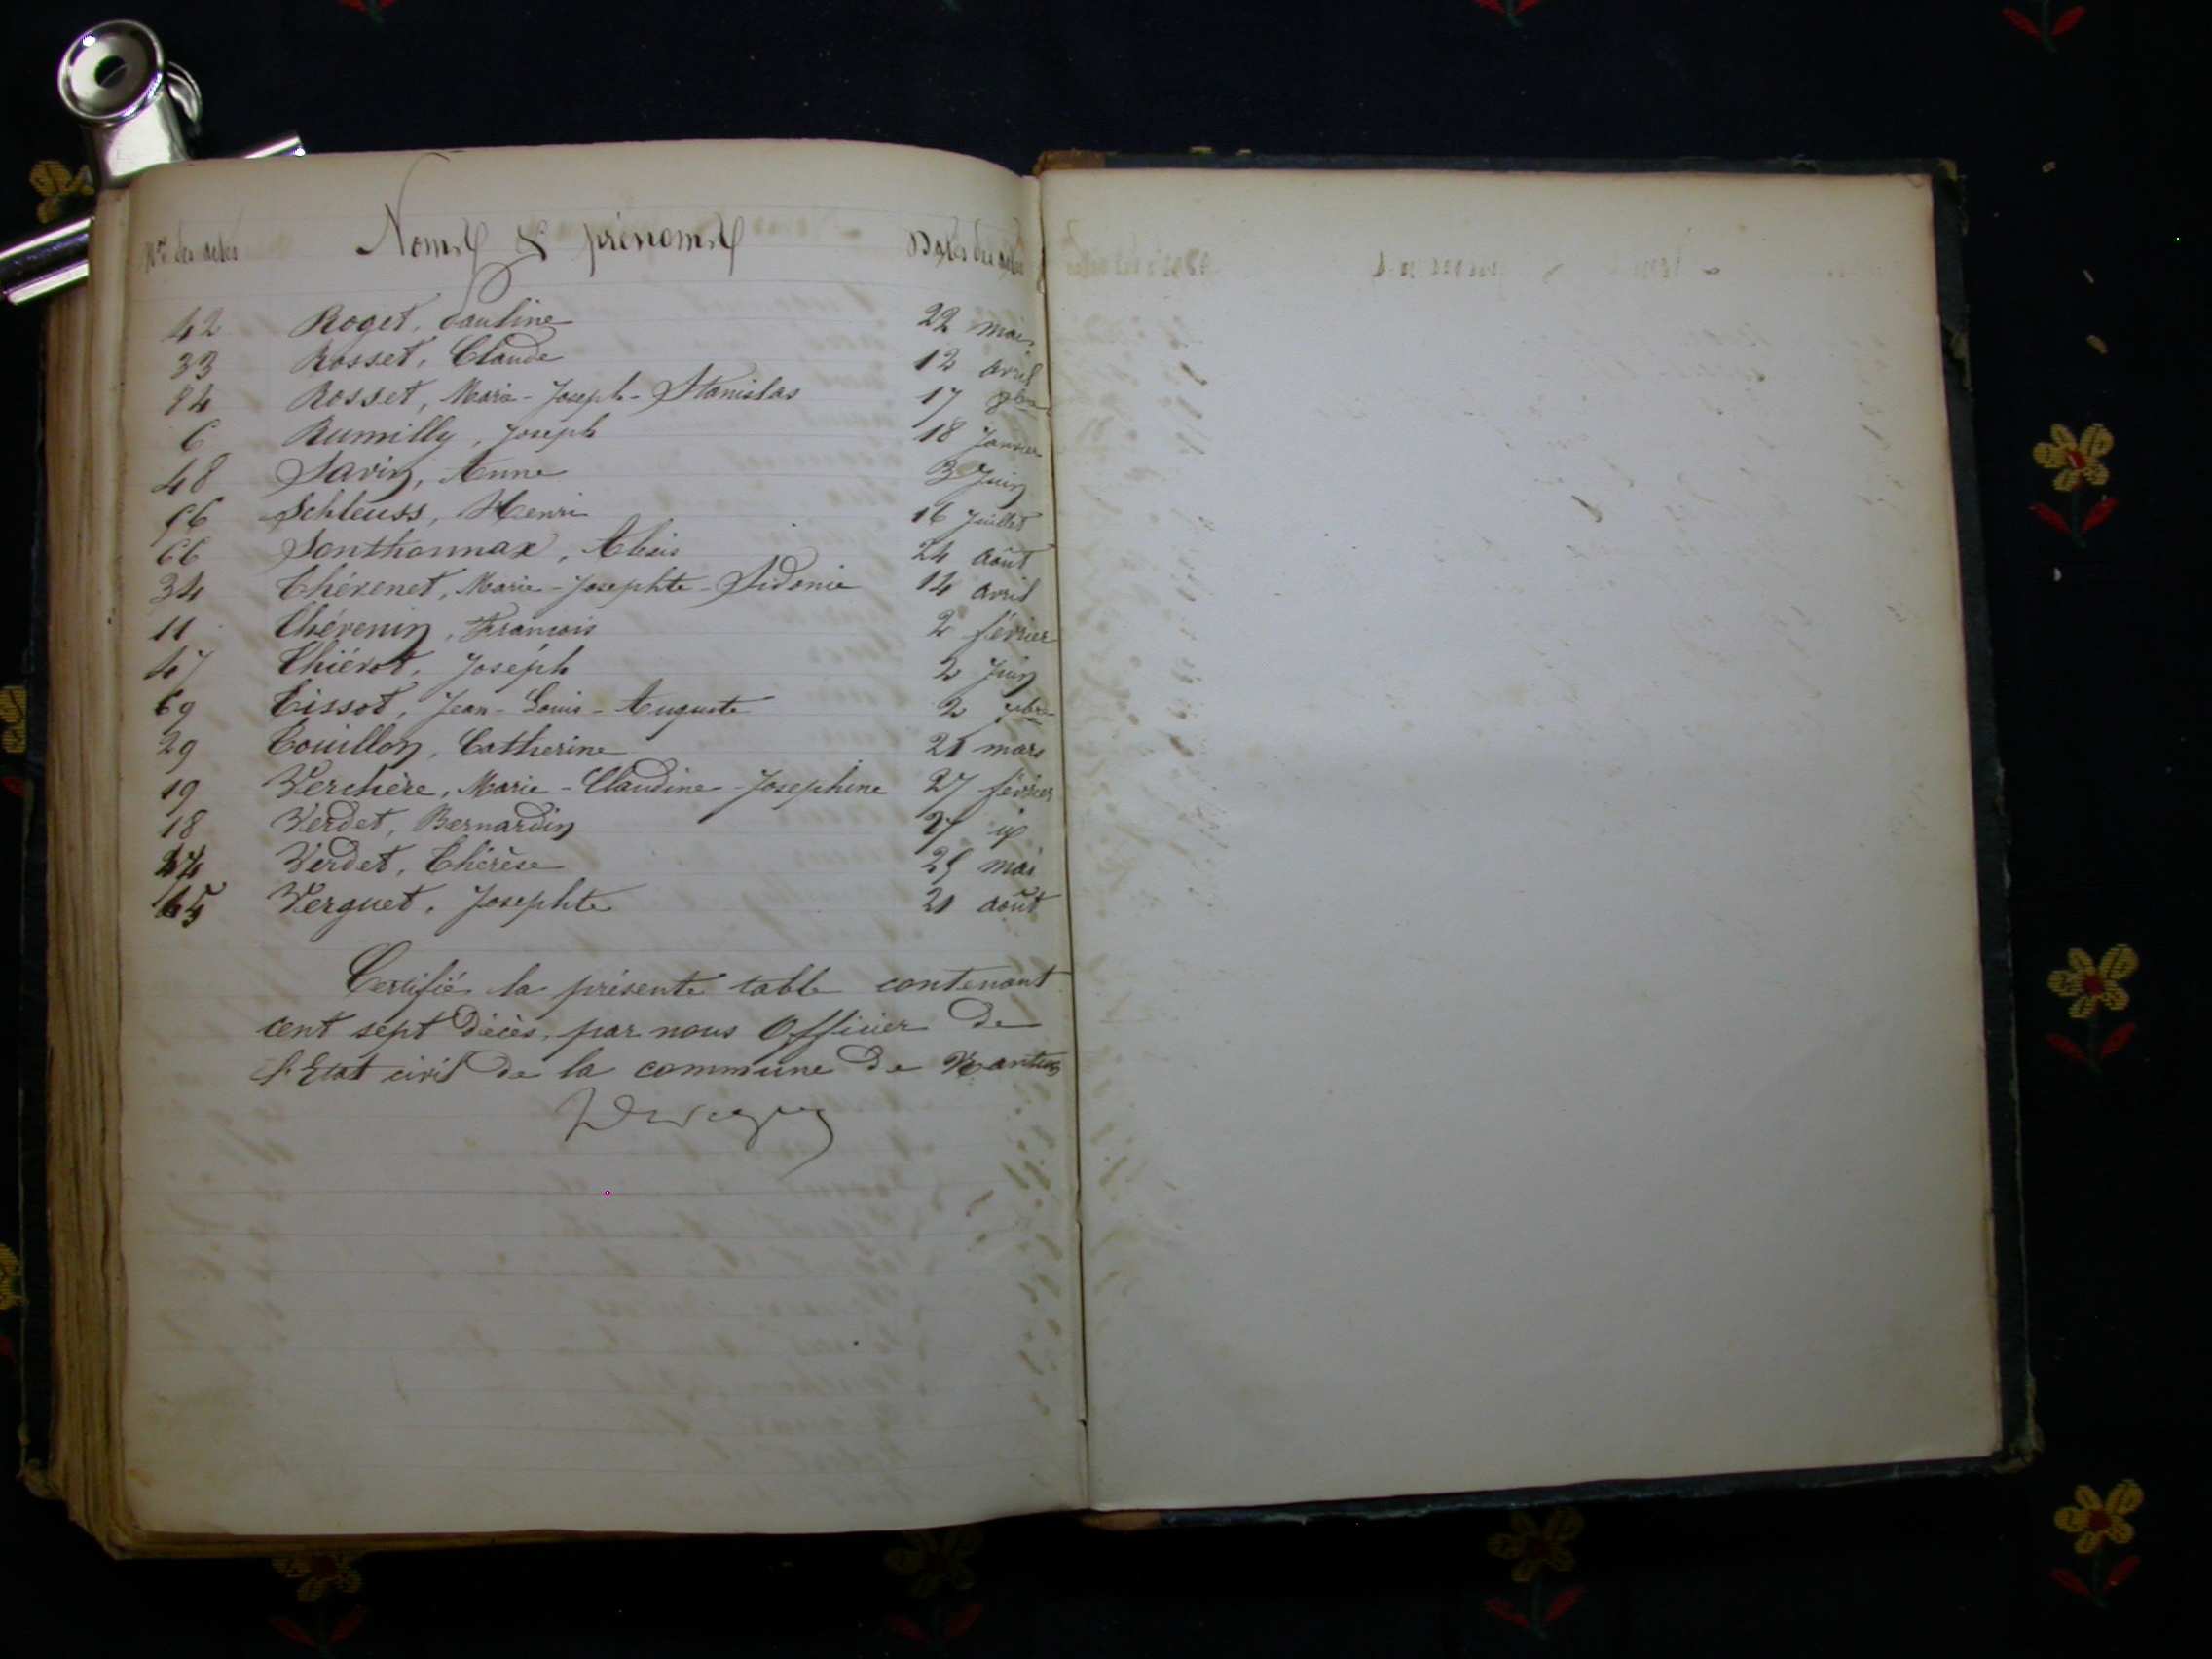 Nos des actes Noms & prénoms Dates des actes
42 Roget, Pauline 22 mai
33 Rosset, Claude 12 avril
84 Rosset, Marie-Joseph-Stanislas 17 8bre
6 Rumilly, Joseph 18 Janvier
48 Savin, Anne 3 Juin
56 Schleuss, Henri 16 Juillet
66 Sonthonnax, Alexis 24 août
34 Thévenet, Marie-Josephte-Sidonie 14 avril
11 Thévenin, François 2 février
47 Thiérot, Joseph 2 Juin
69 Tissot, Jean-Louis-Auguste 2 7bre
29 Touillon, Catherine 21 mars
19 Verchère, Marie-Claudine-Josephine 27 février
18 Verdet, Bernardin 27
44 Verdet, Thérèse 25 mai
65 Verguet, Josephte 21 août
Certifié la présente table contenant
cent sept décès, par nous Officier de
l'Etat civil de la commune de Nantua